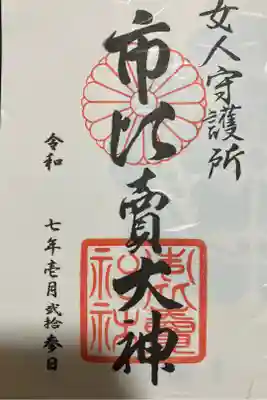 女人守護所
市比賣大神
令和 七年壱月弐拾参日